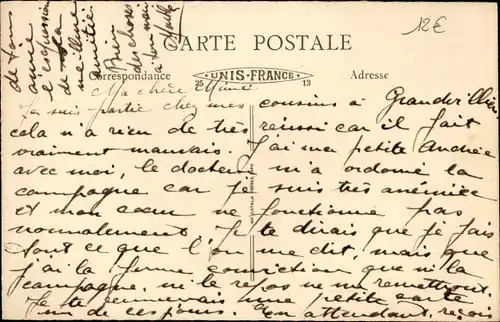 12€
CARTE POSTALE
Correspondance
25 UNIS-FRANCE 13
Adresse
Ma chère Mimi
Je suis partie chez mes cousins à Grandvilliers
cela n'a rien de très réussi car il fait
vraiment mauvais. J'ai ma petite Andrée
avec moi, le docteur m'a ordonné la
campagne car je suis très anémiée
et mon cœur ne fonctionne pas
normalement. Je te dirais que je fais
tout ce que l'on me dit, mais que
j'ai la ferme conviction que ni la
campagne, ni le repos ne me remettront.
Je te enverrais une petite carte
un de ces jours. En attendant, reçois
de ton
amie
l'expression
de sa
meilleure
amitié.
Bien
des choses
à ton mari